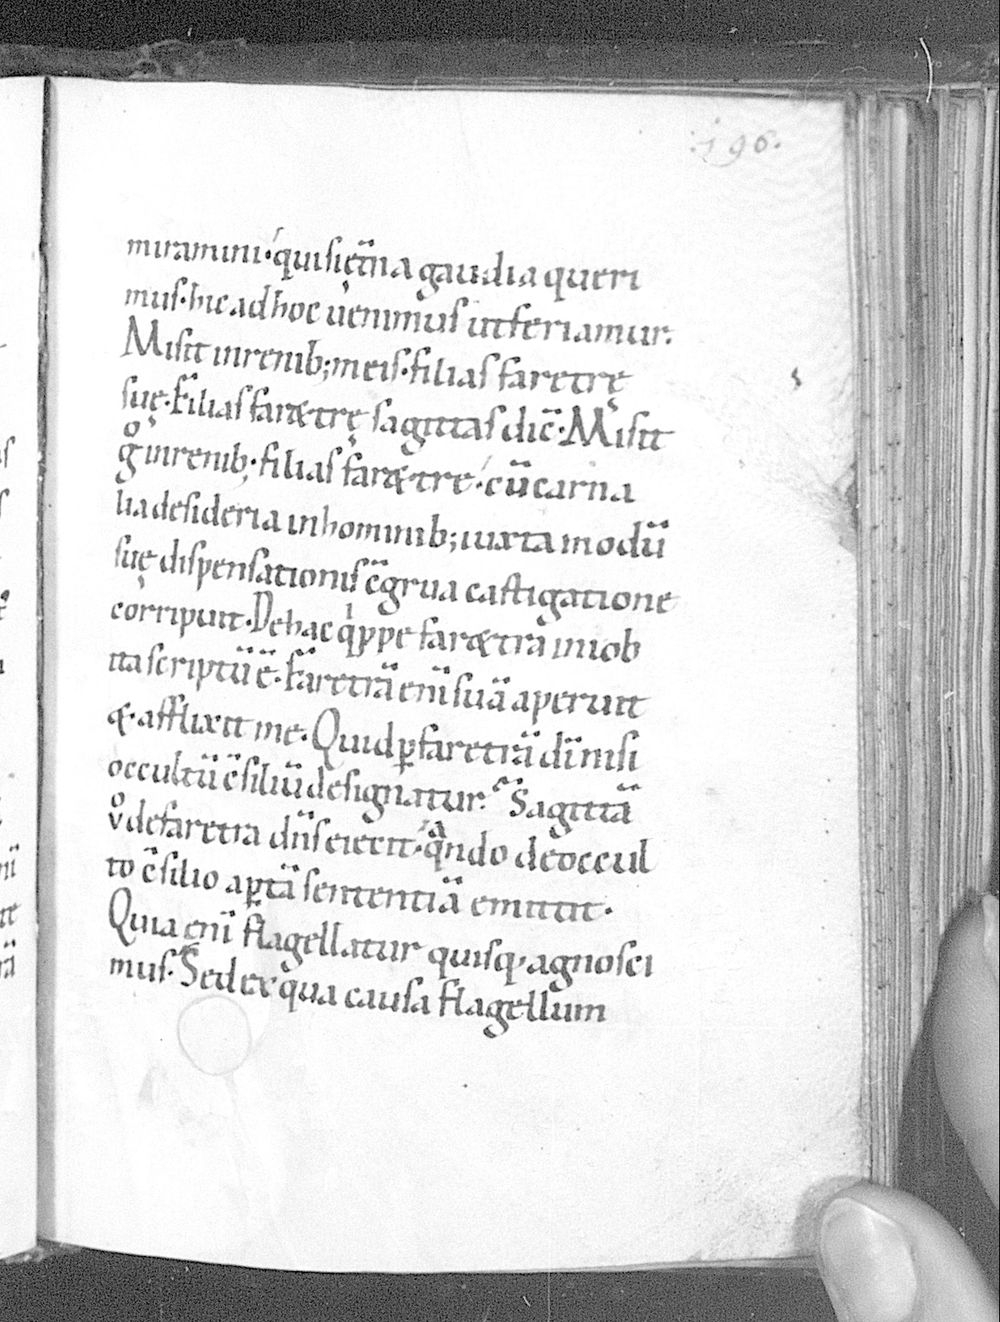 .196.
miramini· qui si ęt̄na gaudia queri
mus· hic ad hoc uenimus ut feriamur.
Misit in renib; meis· filias faretrę
suę. Filias faretrę sagittas dic̄· Misit
gͦ in renib; filias faretre· cū carna
lia desideria in hominib; iuxta modū
suę dispensationis c̄grua castigatione
corripuit· De hac qͥppe faretra in iob
ita scriptū ē· Faretrā enī suā aperuit
&· afflixit me· Quid ꝑ faretrā dī nisi
occultū c̄siliū designatur? Sagittā
vͦ de faretra dn̄s eiecit· qͣndo de occul
to c̄silio aꝑtā sententiā emittit·
Quia enī flagellatur quisq· agnosci
mus· Sed ex qua causa flagellum